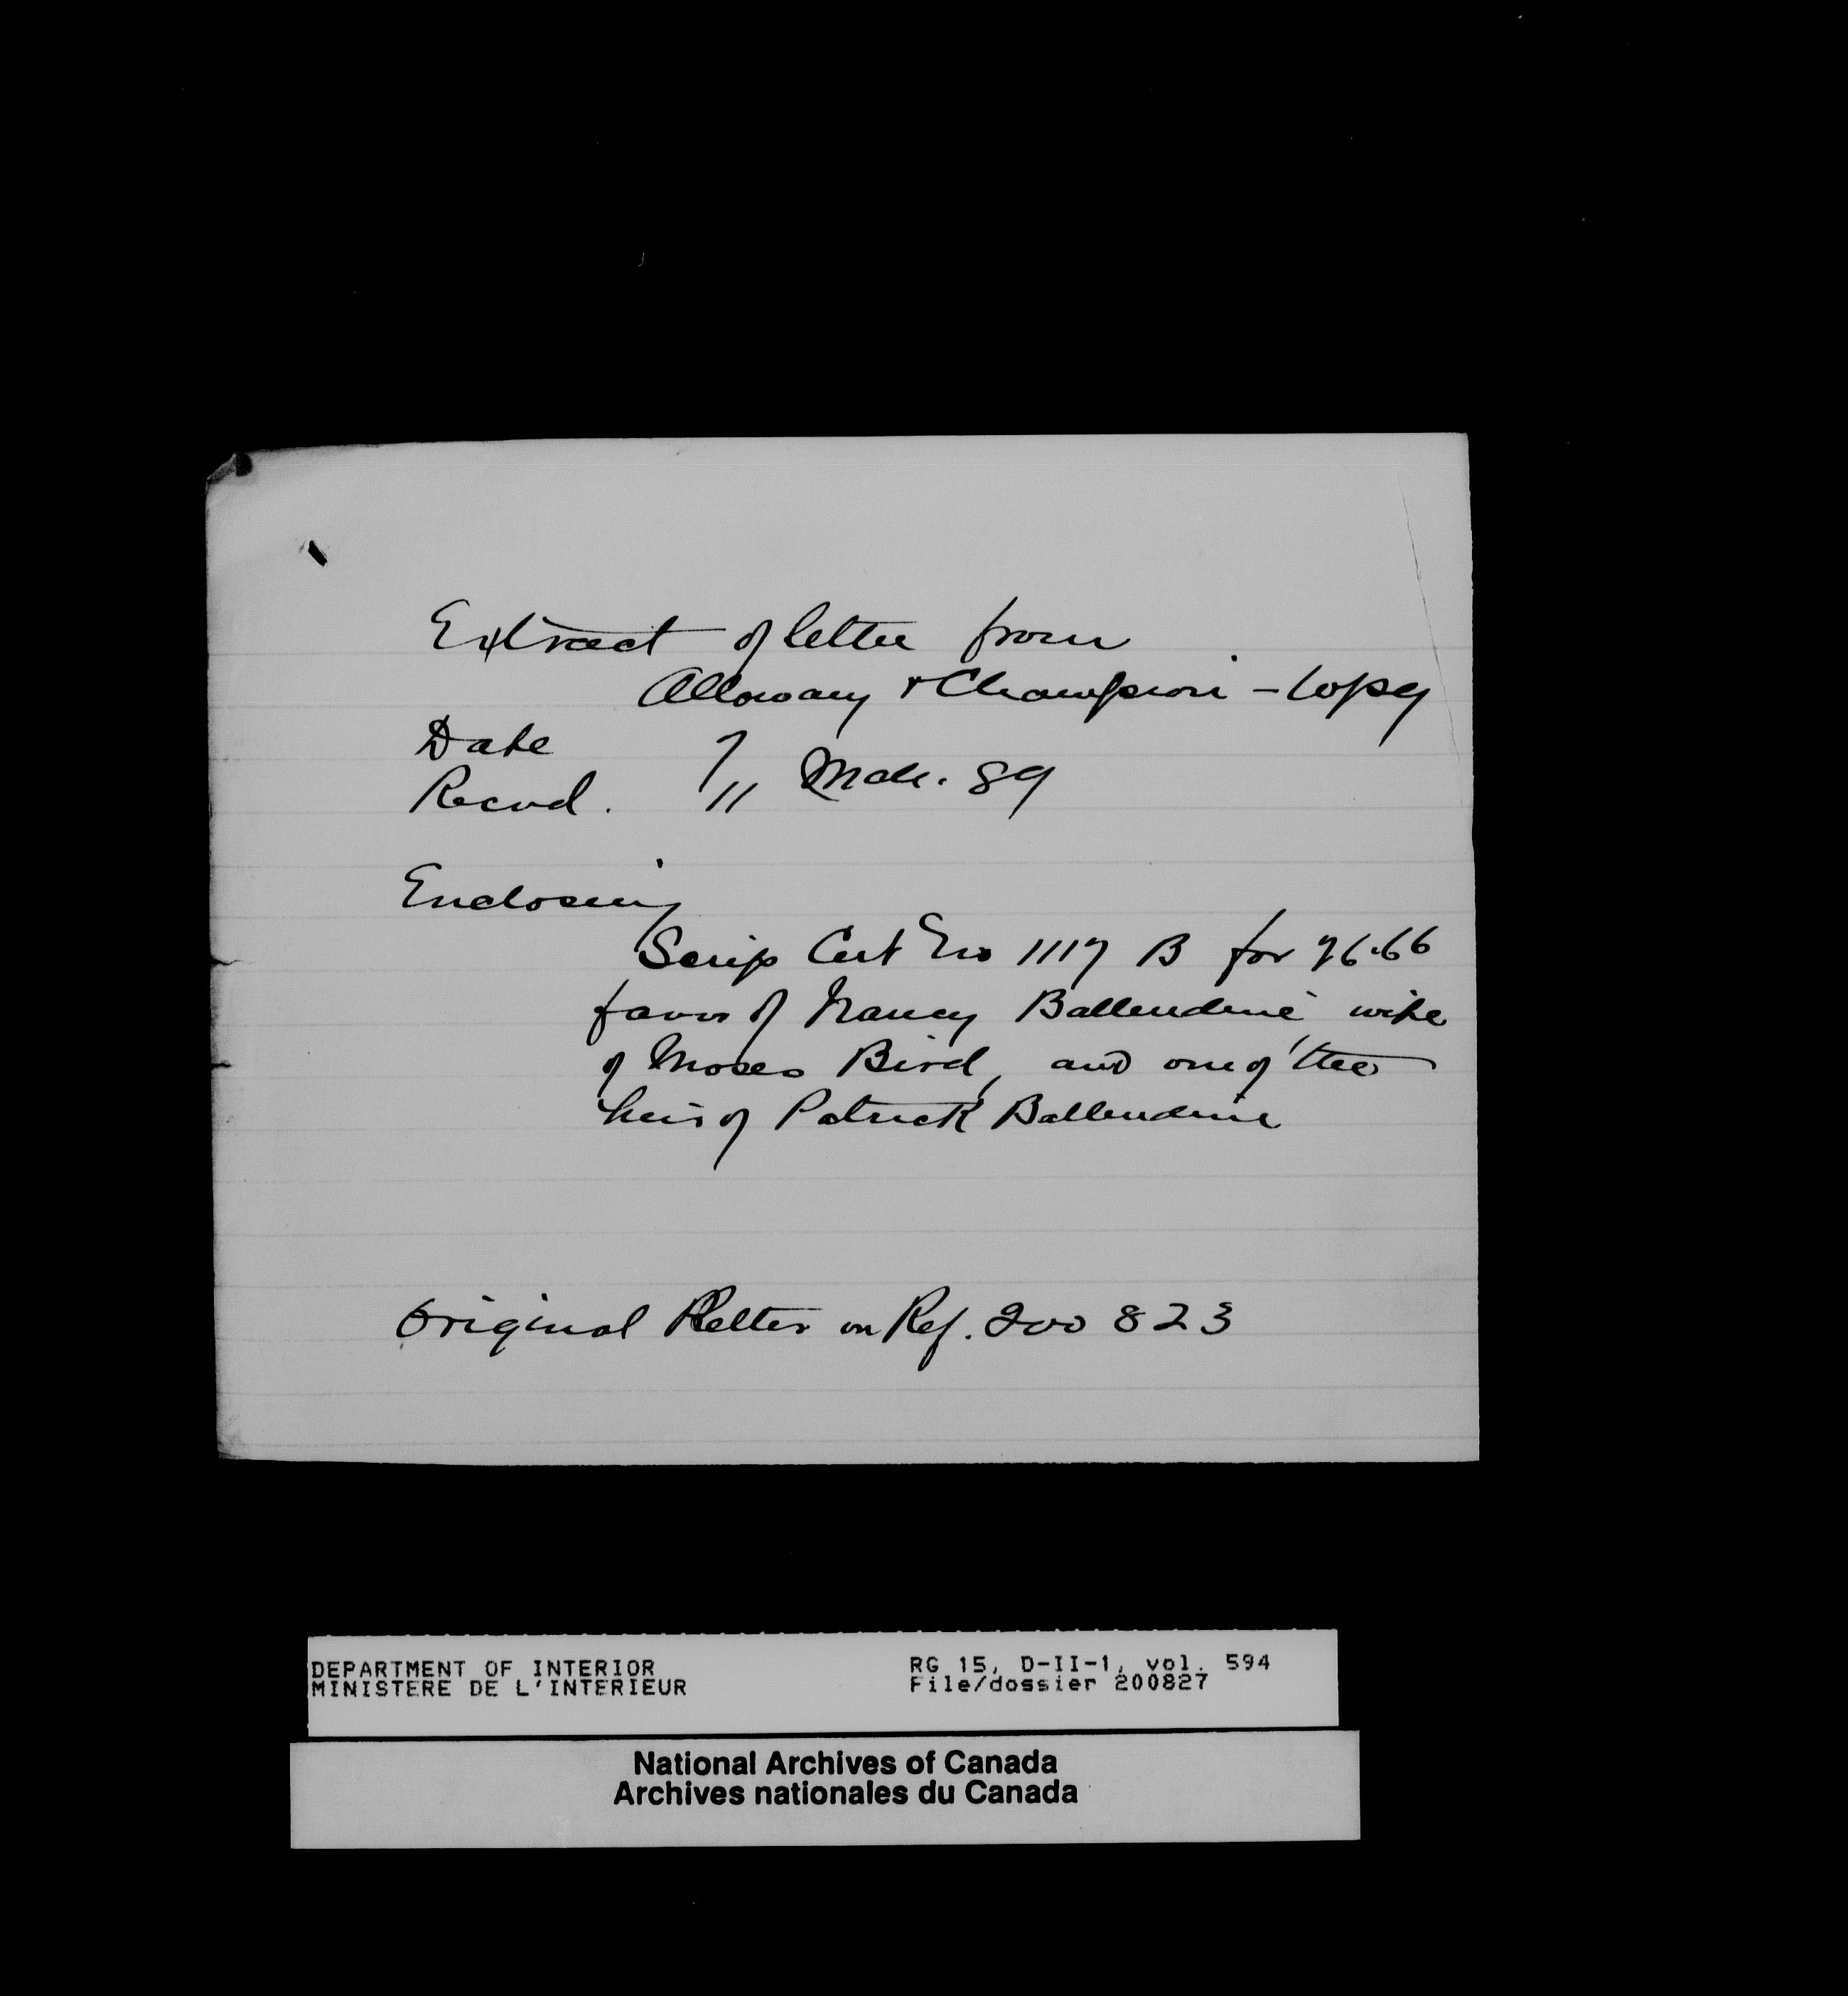 Extract of letter from
Alloway & Champion - Copy
Date 7
Recvd. 11 Mch. 89
Enclosing
Scrip Cert No 1117 B for 26.66
favor of Nancy Ballendine wife
of Moses Bird, and one of the
heirs of Patrick Ballendine
Original Letter on Ref. 200 823
DEPARTMENT OF INTERIOR
MINISTERE DE L'INTERIEUR
RG 15, D-II-1, vol. 594
File/dossier 200827
National Archives of Canada
Archives nationales du Canada